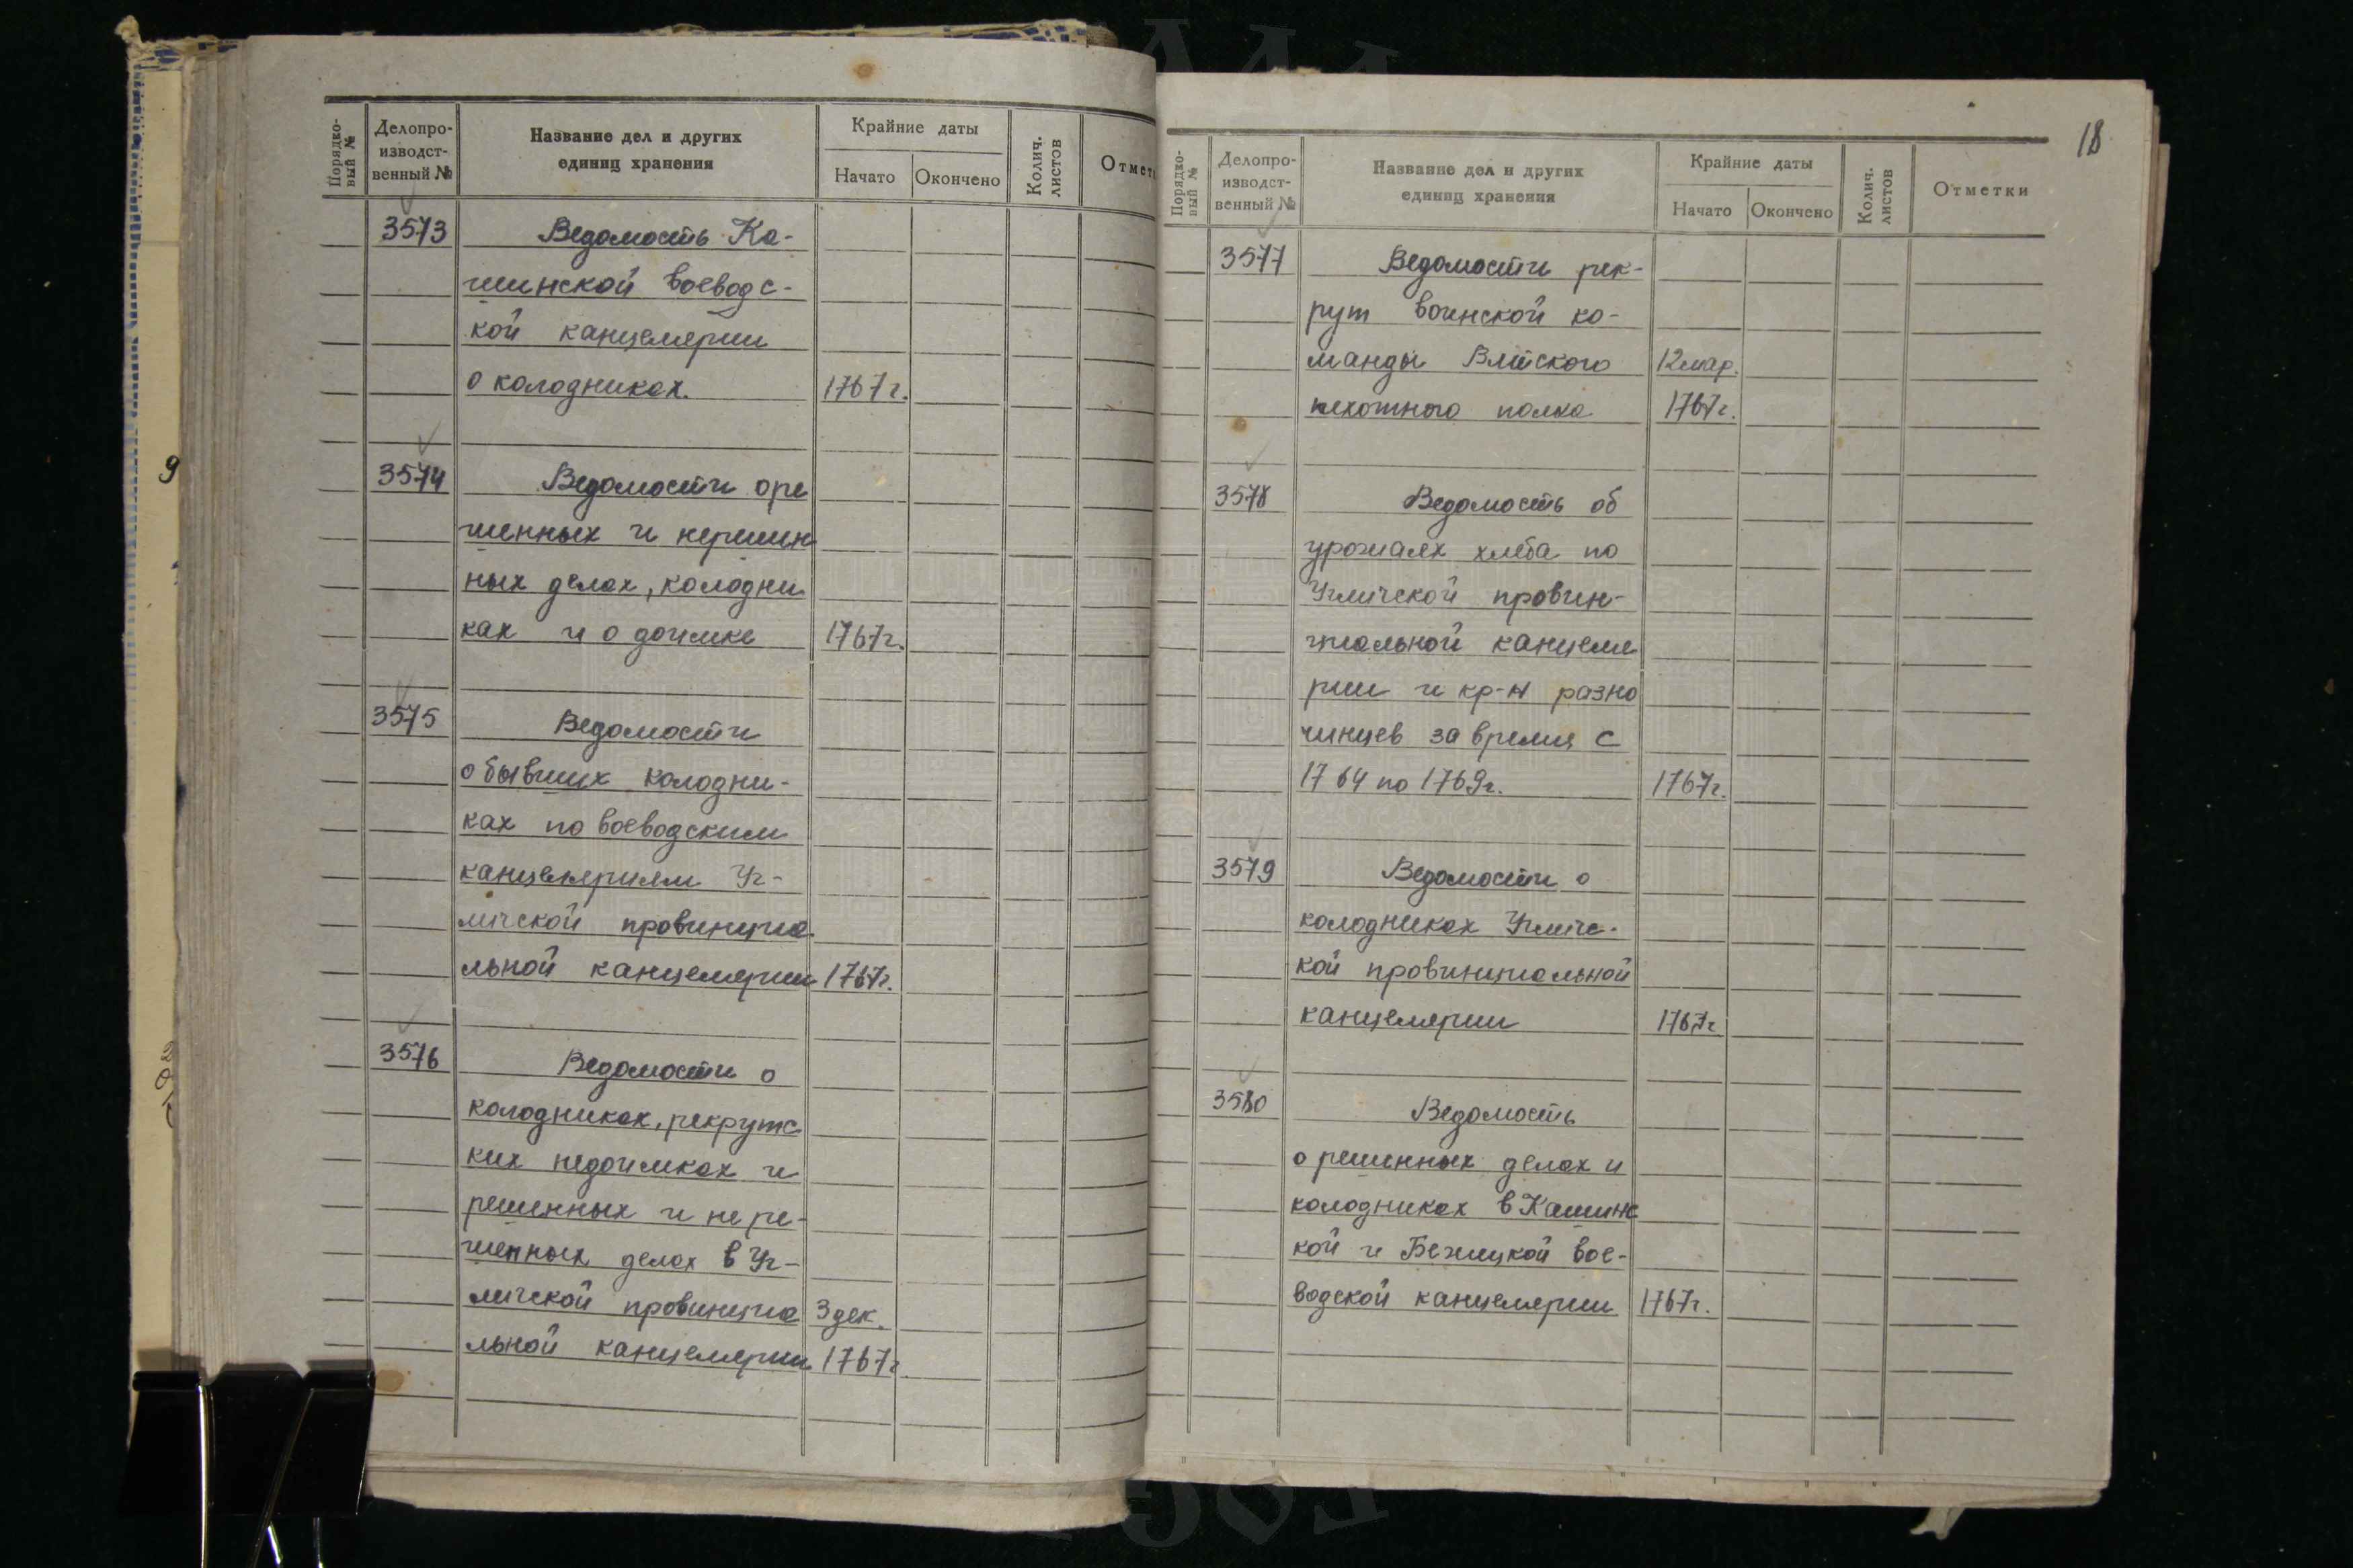 Порядко-
вый №
Делопро-
изводст-
венный №
Название дел и других
единиц хранения
Крайние даты
Начато
Окончено
Колич.
листов
Отмет
3573 Ведомость Ка-
шинской воеводс-
кой канцелярии
о колодниках. 1767г.
3574 Ведомости о ре
шенных и нерешен
ных делах, колодни
ках и о доимке 1767г.
3575 Ведомости
о бывших колодни-
ках по воеводским
канцеляриям Уг-
личской провинциа
льной канцелярии 1767г.
3576 Ведомости о
колодниках, рекрутс
ких недоимках и
решенных и не ре-
шенных делах в Уг-
личской провинциа 3 дек.
льной канцелярии 1767г
18
Порядко-
вый №
Делопро-
изводст-
венный №
Название дел и других
единиц хранения
Крайние даты
Начато
Окончено
Колич.
листов
Отметки
3577 Ведомости рек-
рут воинской ко-
манды 12 мар.
пехотного полка 1767г.
3578 Ведомость об
урожаях хлеба по
Угличской провин-
циальной канцеля
рии и кр-н разно
чинцев за время с
1764 по 1769г. 1767г.
3579 Ведомости о
колодниках Угличс-
кой провинциальной
канцелярии 1767г
3580 Ведомость
о решенных делах и
колодниках в Кашинс
кой и Бежицкой вое-
водской канцелярии 1767г.
9